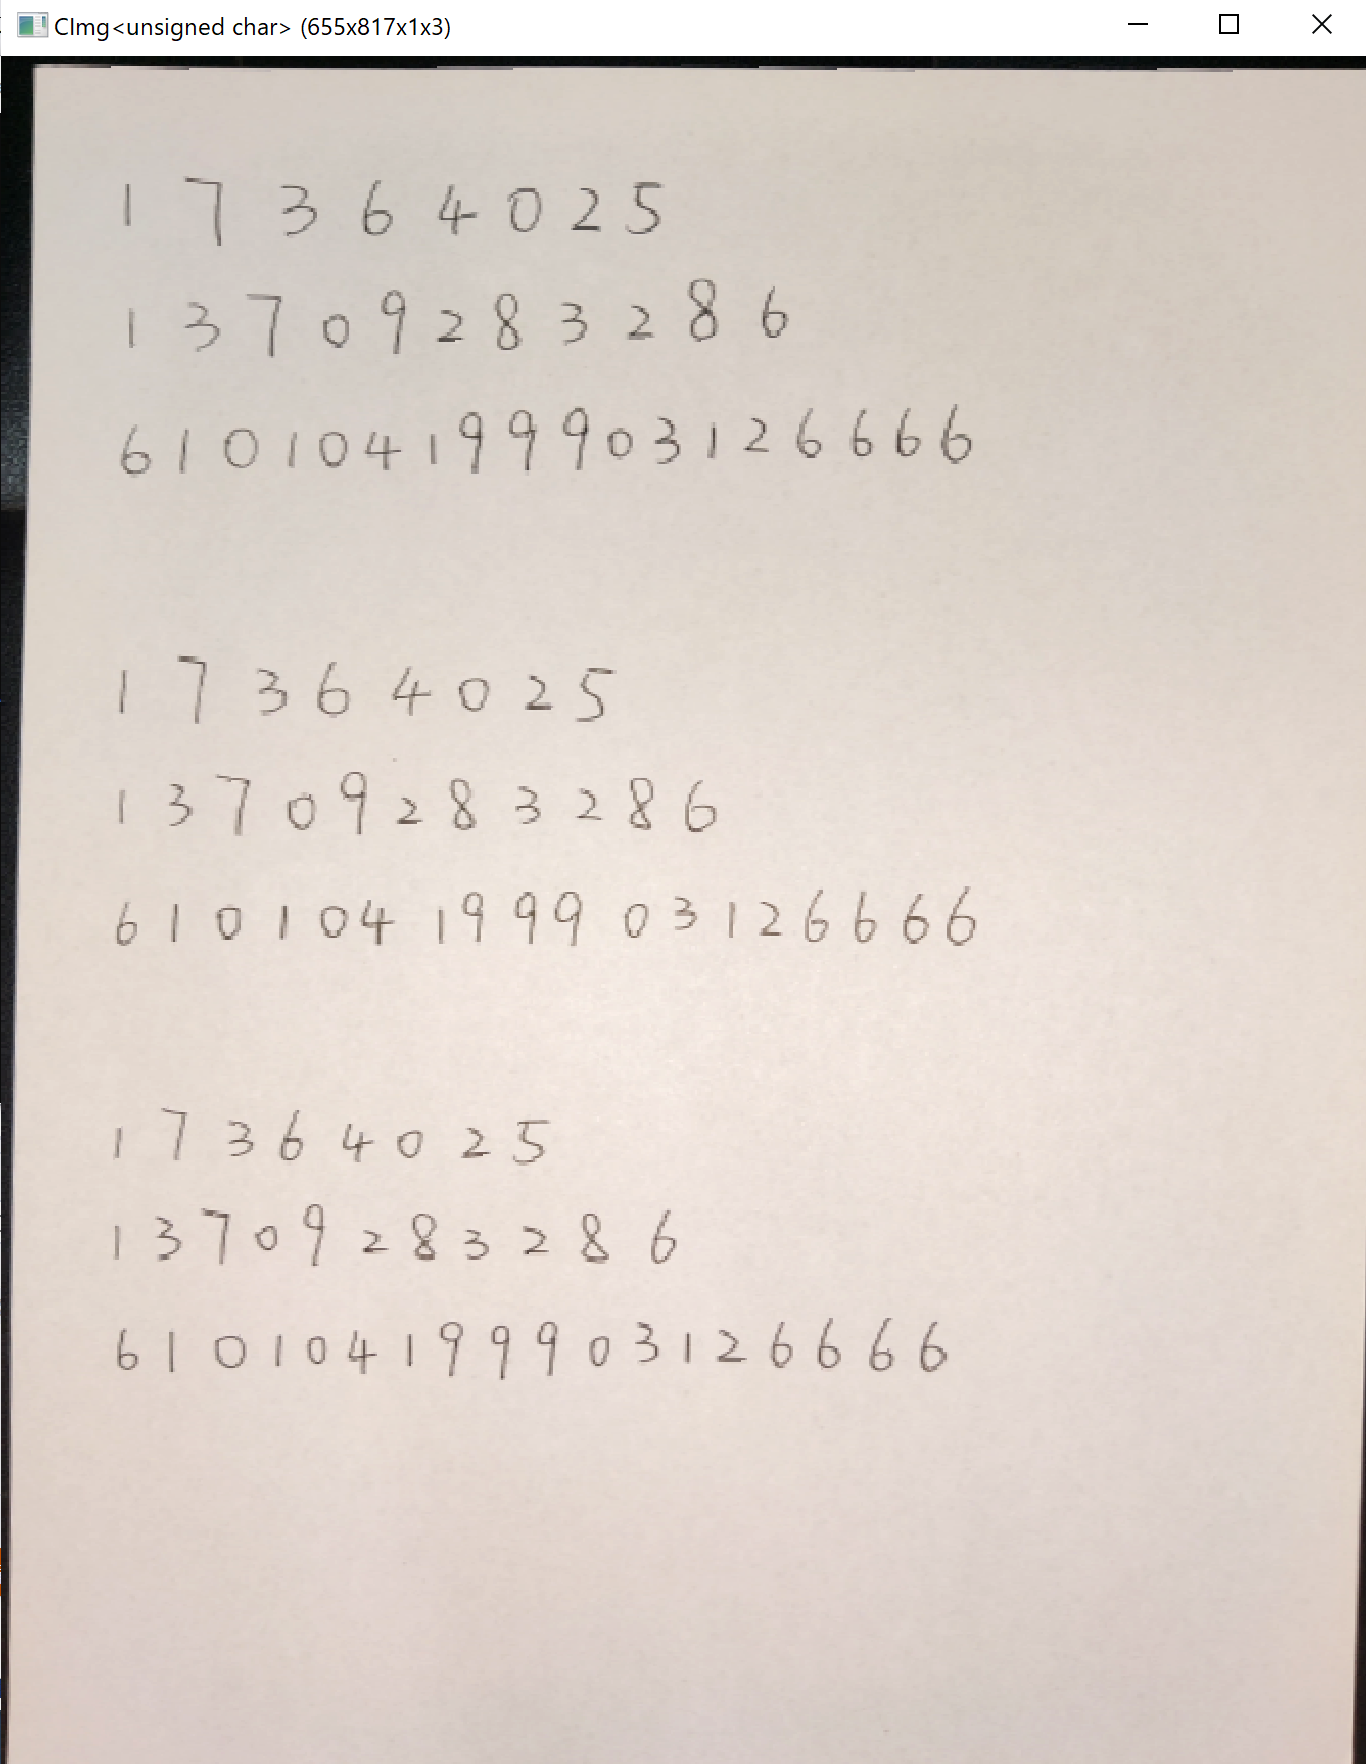 CImg<unsigned char> (655x817x1x3)
1 7 3 6 4 0 2 5
1 3 7 0 9 2 8 3 2 8 6
6 1 0 1 0 4 1 9 9 9 0 3 1 2 6 6 6 6
1 7 3 6 4 0 2 5
1 3 7 0 9 2 8 3 2 8 6
6 1 0 1 0 4 1 9 9 9 0 3 1 2 6 6 6 6
1 7 3 6 4 0 2 5
1 3 7 0 9 2 8 3 2 8 6
6 1 0 1 0 4 1 9 9 9 0 3 1 2 6 6 6 6